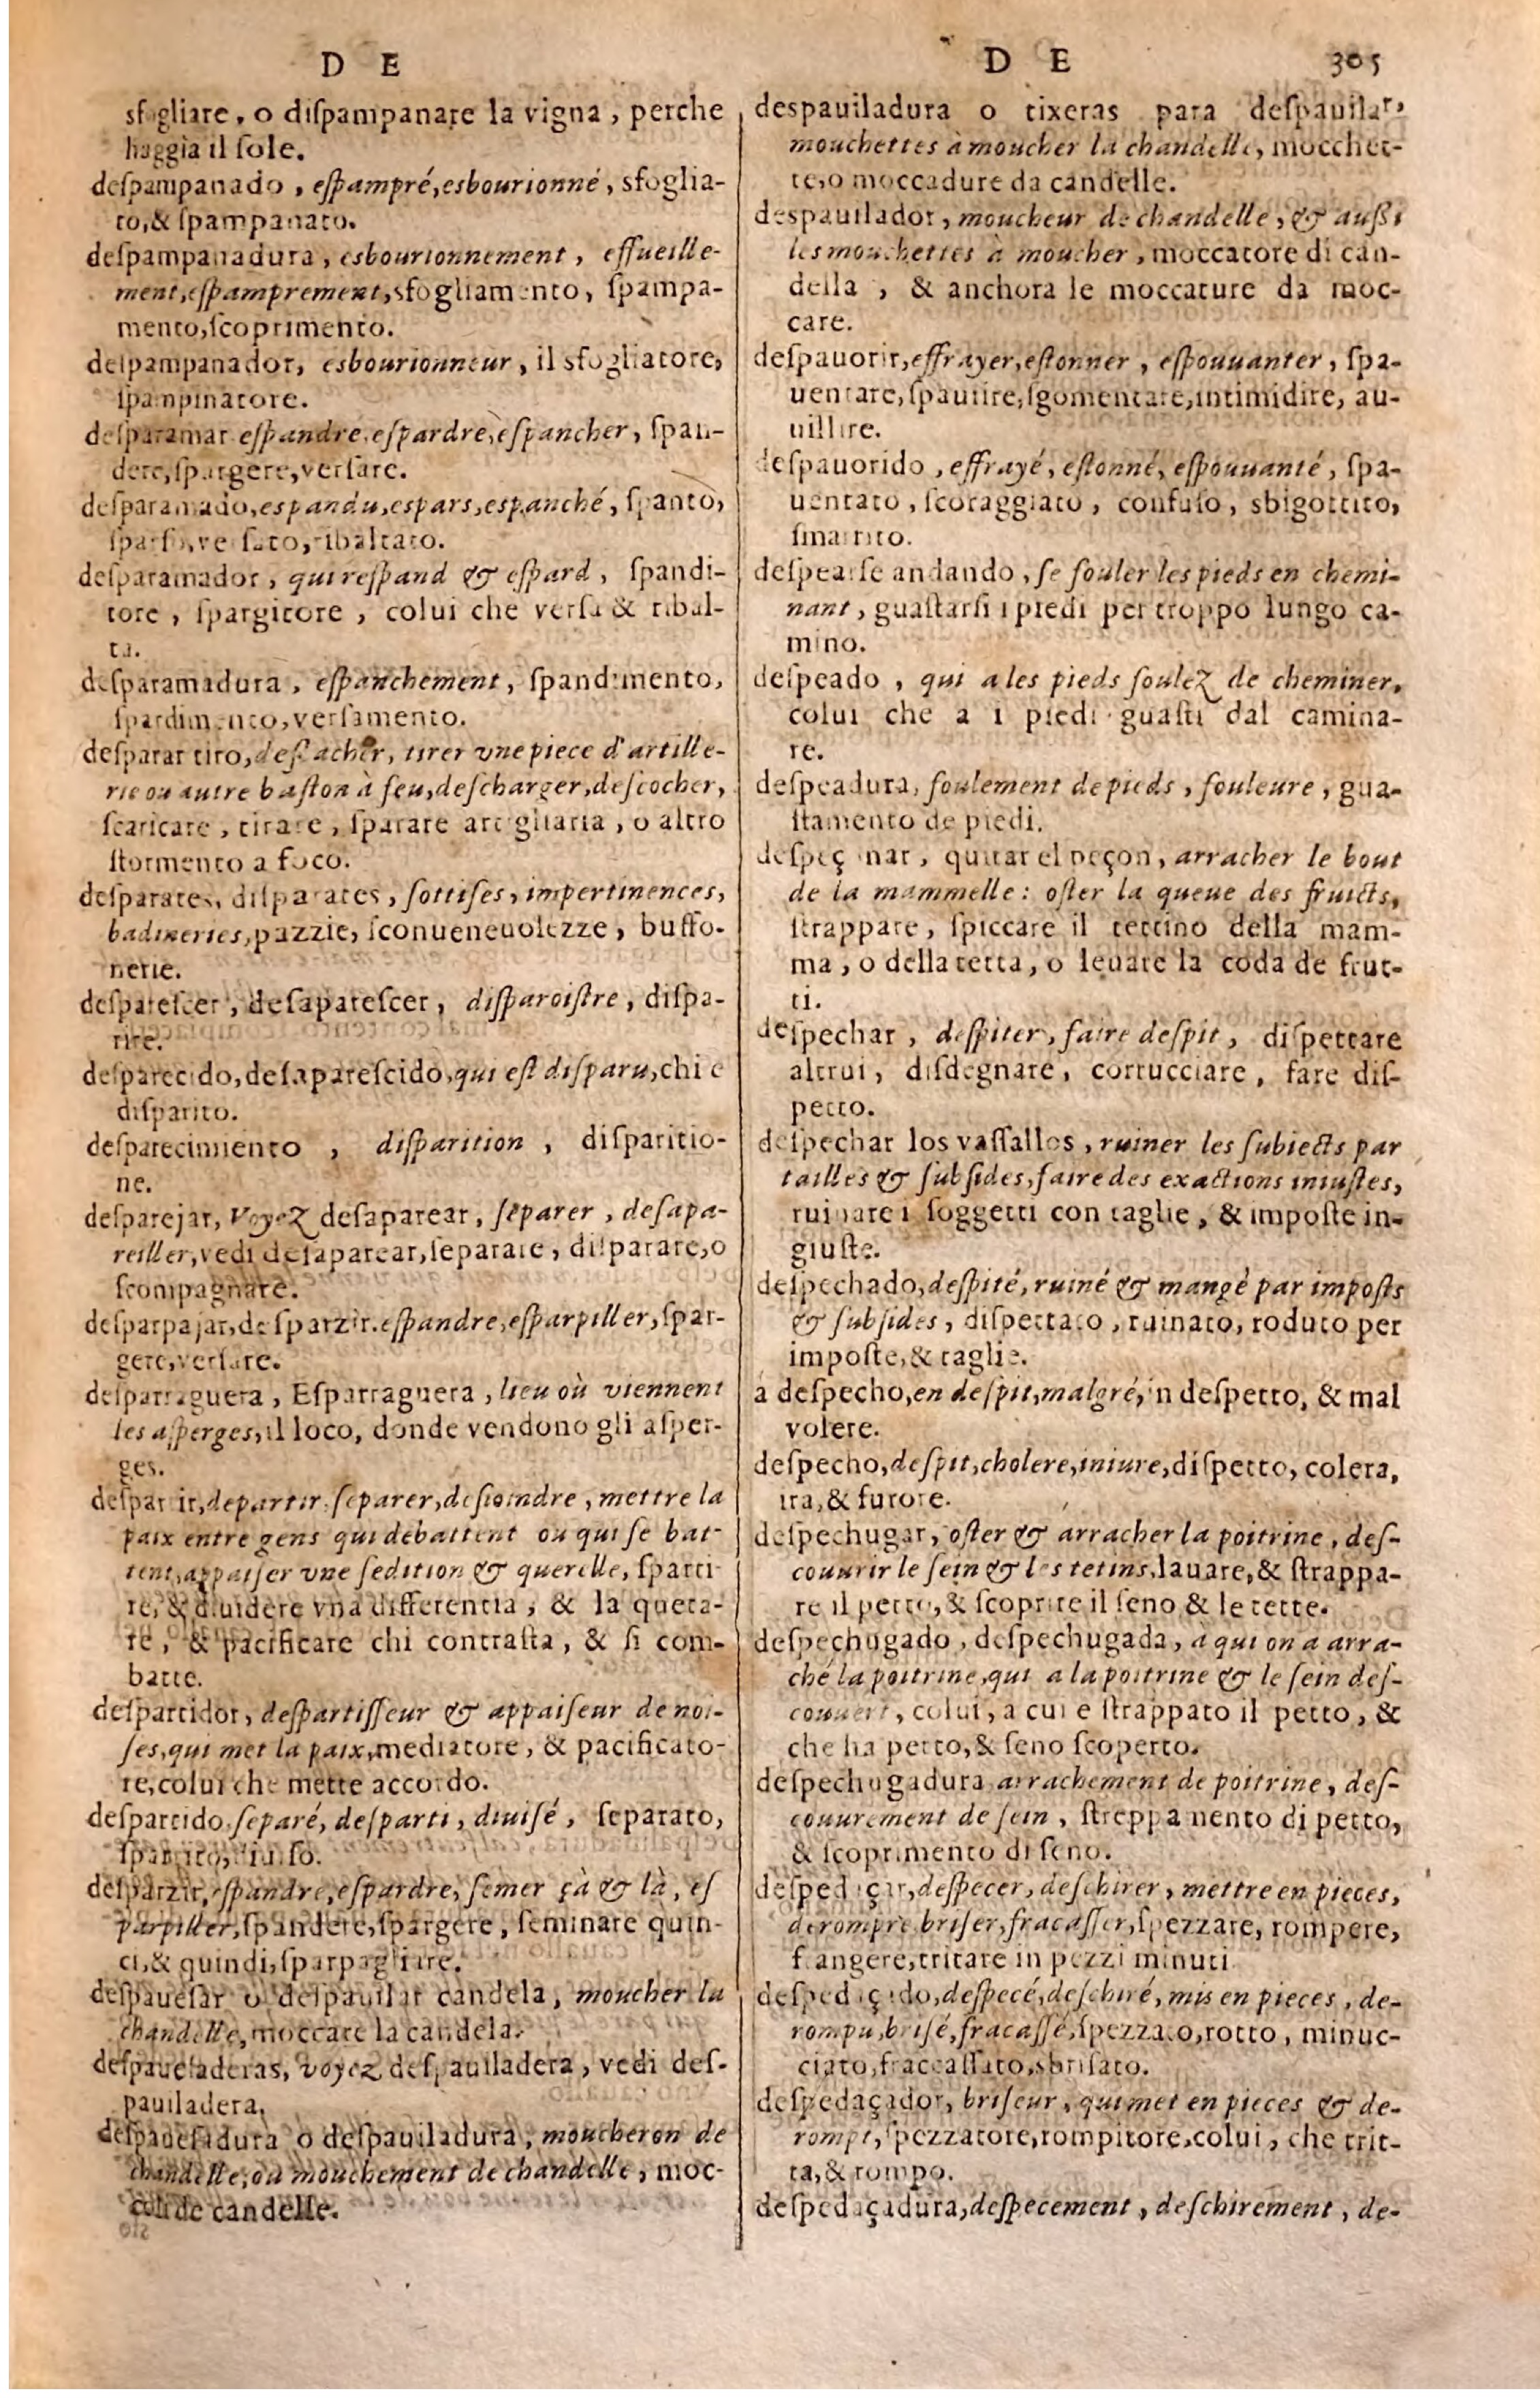 D E
sfogliare, o diſpampanare la vigna, perche
haggia il ſole.
deſpampanado, eſpampré, esbourionné, sfoglia-
to, & ſpampanato.
deſpampanadura, esbourionnement, effueille-
ment, eſpamprement, sfogliamento, ſpampa-
mento, ſcoprimento.
deſpampanador, esbourionneur, il sfogliatore,
ſpampinatore.
deſparamar eſpandre, eſpardre, eſpancher, ſpan-
dere, ſpargere, verſare.
deſparamado, espandu, espars, espanché, ſpanto,
ſparſo, verſato, ribaltato.
deſparamador, qui reſpand & eſpard, ſpandi-
tore, ſpargitore, colui che verſa & ribal-
ta.
deſparamadura, eſpanchement, ſpandimento,
ſpardimento, verſamento.
deſparar tiro, deſlacher, tirer vne piece d'artille-
rie ou autre baſton à feu, deſcharger, deſcocher,
ſcaricare, tirare, ſparare artigliaria, o altro
ſtormento a foco.
deſparates, diſparates, ſottiſes, impertinences,
badineries, pazzie, ſconueneuolezze, buffo-
nerie.
deſpareſcer, deſapareſcer, diſparoiſtre, diſpa-
rire.
deſparecido, deſapareſcido, qui eſt diſparu, chi e
diſparito.
deſparecimiento, diſparition, diſparitio-
ne.
deſparejar, Voyez deſaparear, ſeparer, deſapa-
reiller, vedi deſaparear, ſeparare, diſparare, o
ſcompagnare.
deſparpajar, deſparzir. eſpandre, eſparpiller, ſpar-
gere, verſare.
deſparraguera, Eſparraguera, lieu où viennent
les aſperges, il loco, donde vendono gli aſper-
ges.
deſpartir, departir, ſeparer, deſioindre, mettre la
paix entre gens qui debattent ou qui ſe bat-
tent, appaiſer vne ſedition & querelle, ſparti-
re, & diuidere vna differentia, & la quera-
re, & pacificare chi contraſta, & ſi com-
batte.
deſpartidor, deſpartiſſeur & appaiſeur de noi-
ſes, qui met la paix, mediatore, & pacificato-
re, colui che mette accordo.
deſpartido. ſeparé, deſparti, diuiſé, ſeparato,
ſpartito, diuiſo.
deſparzir, eſpandre, eſpardre, ſemer çà & là, eſ
parpiller, ſpandere, ſpargere, ſeminare quin-
ci, & quindi, ſparpagliare.
deſpaueſar o deſpauilar candela, moucher la
chandelle, moccare la candela.
deſpaueſaderas, voyez deſpauiladera, vedi deſ-
pauiladera.
deſpaueſadura o deſpauiladura, moucheron de
chandelle, ou mouchement de chandelle, moc-
coli de candelle.
D E 305
despauiladura o tixeras para deſpauilar,
mouchettes à moucher la chandelle, mocchet-
te, o moccadure da candelle.
despauilador, moucheur de chandelle, & außi
les mouchettes à moucher, moccatore di can-
della, & anchora le moccature da moc-
care.
deſpauorir, effrayer, eſtonner, eſpouuanter, ſpa-
uentare, ſpautire, ſgomentare, intimidire, au-
uillire.
deſpauorido, effrayé, eſtonné, eſpouuanté, ſpa-
uentato, ſcoraggiato, confuſo, sbigottito,
ſmarrito.
deſpearſe andando, ſe fouler les pieds en chemi-
nant, guaſtarſi i piedi per troppo lungo ca-
mino.
deſpeado, qui a les pieds foulez de cheminer,
colui che a i piedi guaſti dal camina-
re.
deſpeadura, foulement de pieds, fouleure, gua-
ſtamento de piedi.
deſpeçonar, quitar el peçon, arracher le bout
de la mammelle: oſter la queue des fruicts,
ſtrappare, ſpiccare il tettino della mam-
ma, o della tetta, o leuare la coda de frut-
ti.
deſpechar, deſpiter, faire deſpit, diſpettare
altrui, diſdegnare, corrucciare, fare diſ-
petto.
deſpechar los vaſſallos, ruiner les ſubiects par
tailles & ſubſides, faire des exactions iniuſtes,
ruinare i ſoggetti con taglie, & impoſte in-
giuſte.
deſpechado, deſpité, ruiné & mangé par impoſts
& ſubſides, diſpettato, ruinato, roduto per
impoſte, & taglie.
a deſpecho, en deſpit, malgré, in deſpetto, & mal
volere.
deſpecho, deſpit, cholere, iniure, diſpetto, colera,
ira, & furore.
deſpechugar, oſter & arracher la poitrine, deſ-
couurir le ſein & les tetins, lauare, & ſtrappa-
re il petto, & ſcoprire il ſeno & le tette.
deſpechugado, deſpechugada, a qui on a arra-
ché la poitrine, qui a la poitrine & le ſein deſ-
couuert, colui, a cui e ſtrappato il petto, &
che ha petto, & ſeno ſcoperto.
deſpechugadura arrachement de poitrine, deſ-
couurement de ſein, ſtreppamento di petto,
& ſcoprimento di ſeno.
deſpedaçar, deſpecer, deſchirer, mettre en pieces,
derompre, briſer, fracaſſer, ſpezzare, rompere,
frangere, tritare in pezzi minuti
deſpedaçado, deſpecé, deſchiré, mis en pieces, de-
rompu, briſé, fracaſſé, ſpezzato, rotto, minuc-
ciato, fraccaſſato, sbriſato.
deſpedaçador, briſeur, qui met en pieces & de-
rompt, ſpezzatore, rompitore, colui, che trit-
ta, & rompo.
deſpedaçadura, deſpecement, deſchirement, de-